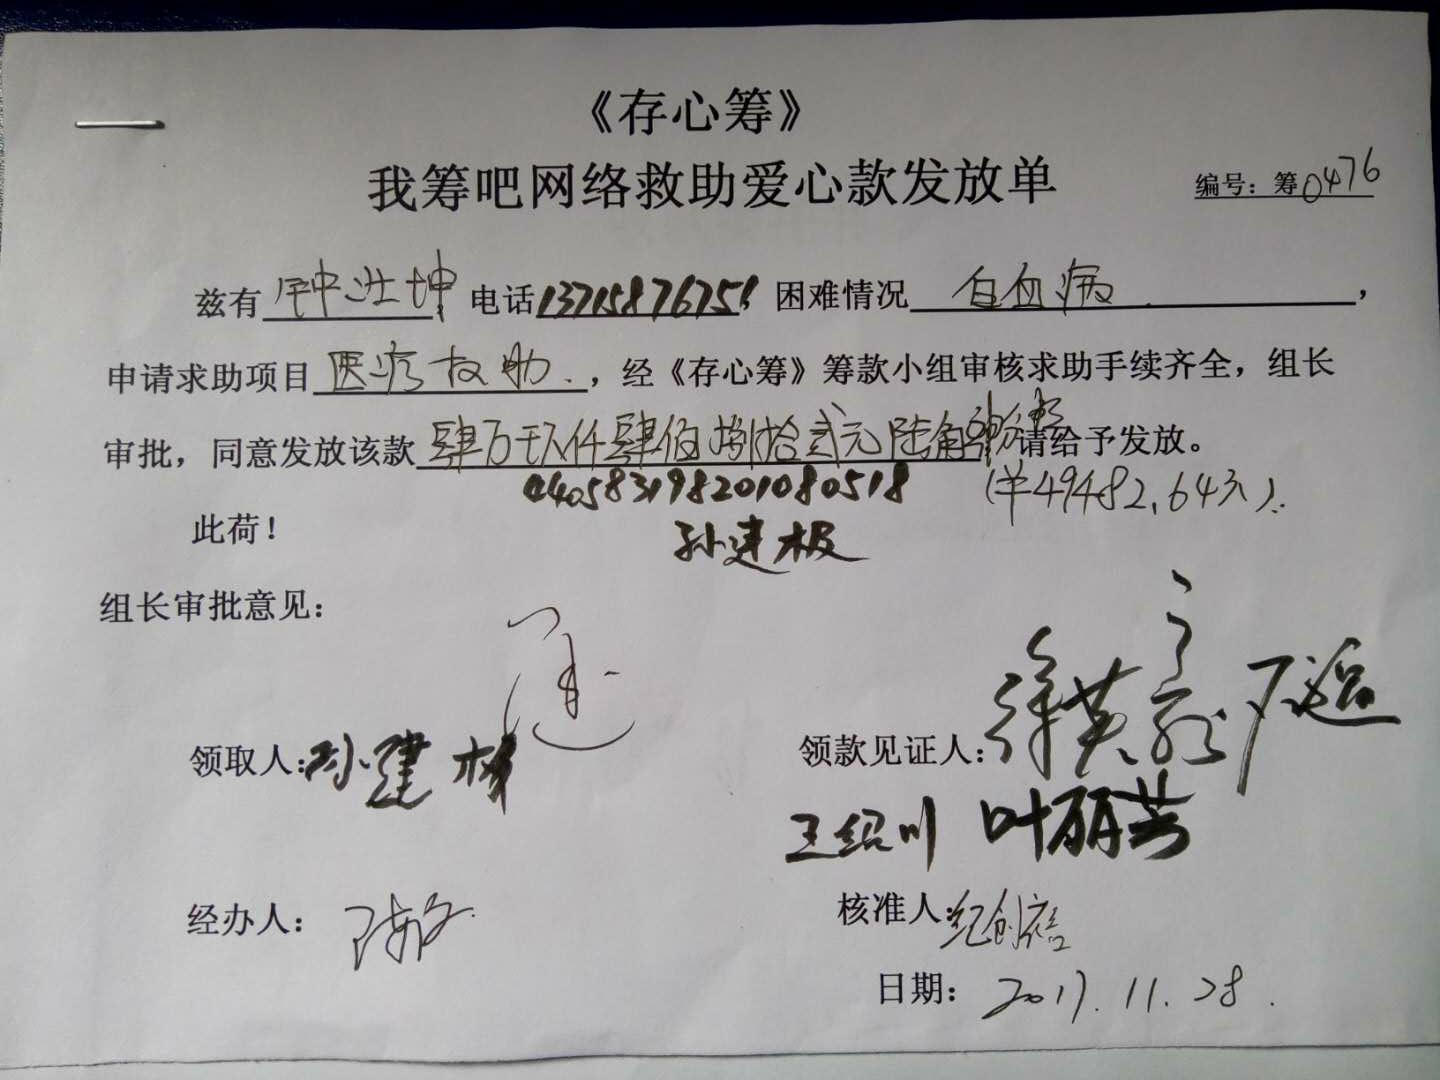 《存心筹》
我筹吧网络救助爱心款发放单
编号：筹0476
兹有钟壮坤 电话13715876751，困难情况 白血病，
申请求助项目 医疗救助，经《存心筹》筹款小组审核求助手续齐全，组长
审批，同意发放该款 肆万玖仟肆佰捌拾贰元陆角肆分 请给予发放。
440583198201080518 (¥49482.64元).
此荷！ 孙建极
组长审批意见：
领取人：孙建极 领款见证人：徐英
王绍川 叶丽芸
经办人： 核准人：纪创
日期：2017.11.28.